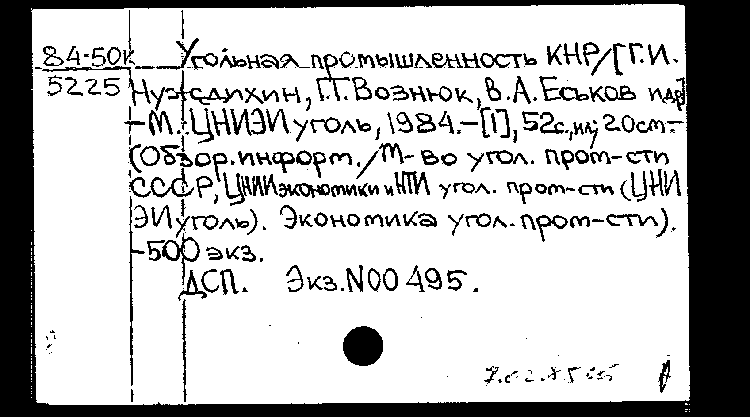 84-50к Угольная промышленность КНР/[Г.И.
5225 Нуждихин, Г.Т. Вознюк, В.А. Еськов и др]
-М.: ЦНИЭИуголь, 1984.-[1], 52с., ил; 20см.-
(Обзор. информ./М-во угол. пром-сти
СССР, ЦНИИ экономики и НТИ угол. пром-сти (ЦНИ
ЭИуголь). Экономика угол. пром-сти).
-500 экз.
ДСП. Экз.N00495.